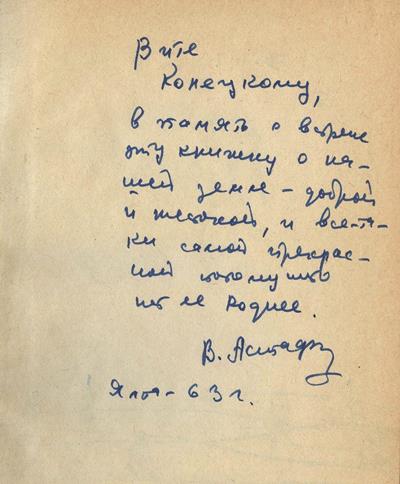 Вите
Конецкому,
в память о встрече
эту книжку о на-
шей земле – доброй
и жестокой, и все-та-
ки самой прекрас-
ной потому что
нет ее роднее.
В. Астафь
Ялта – 63 г.